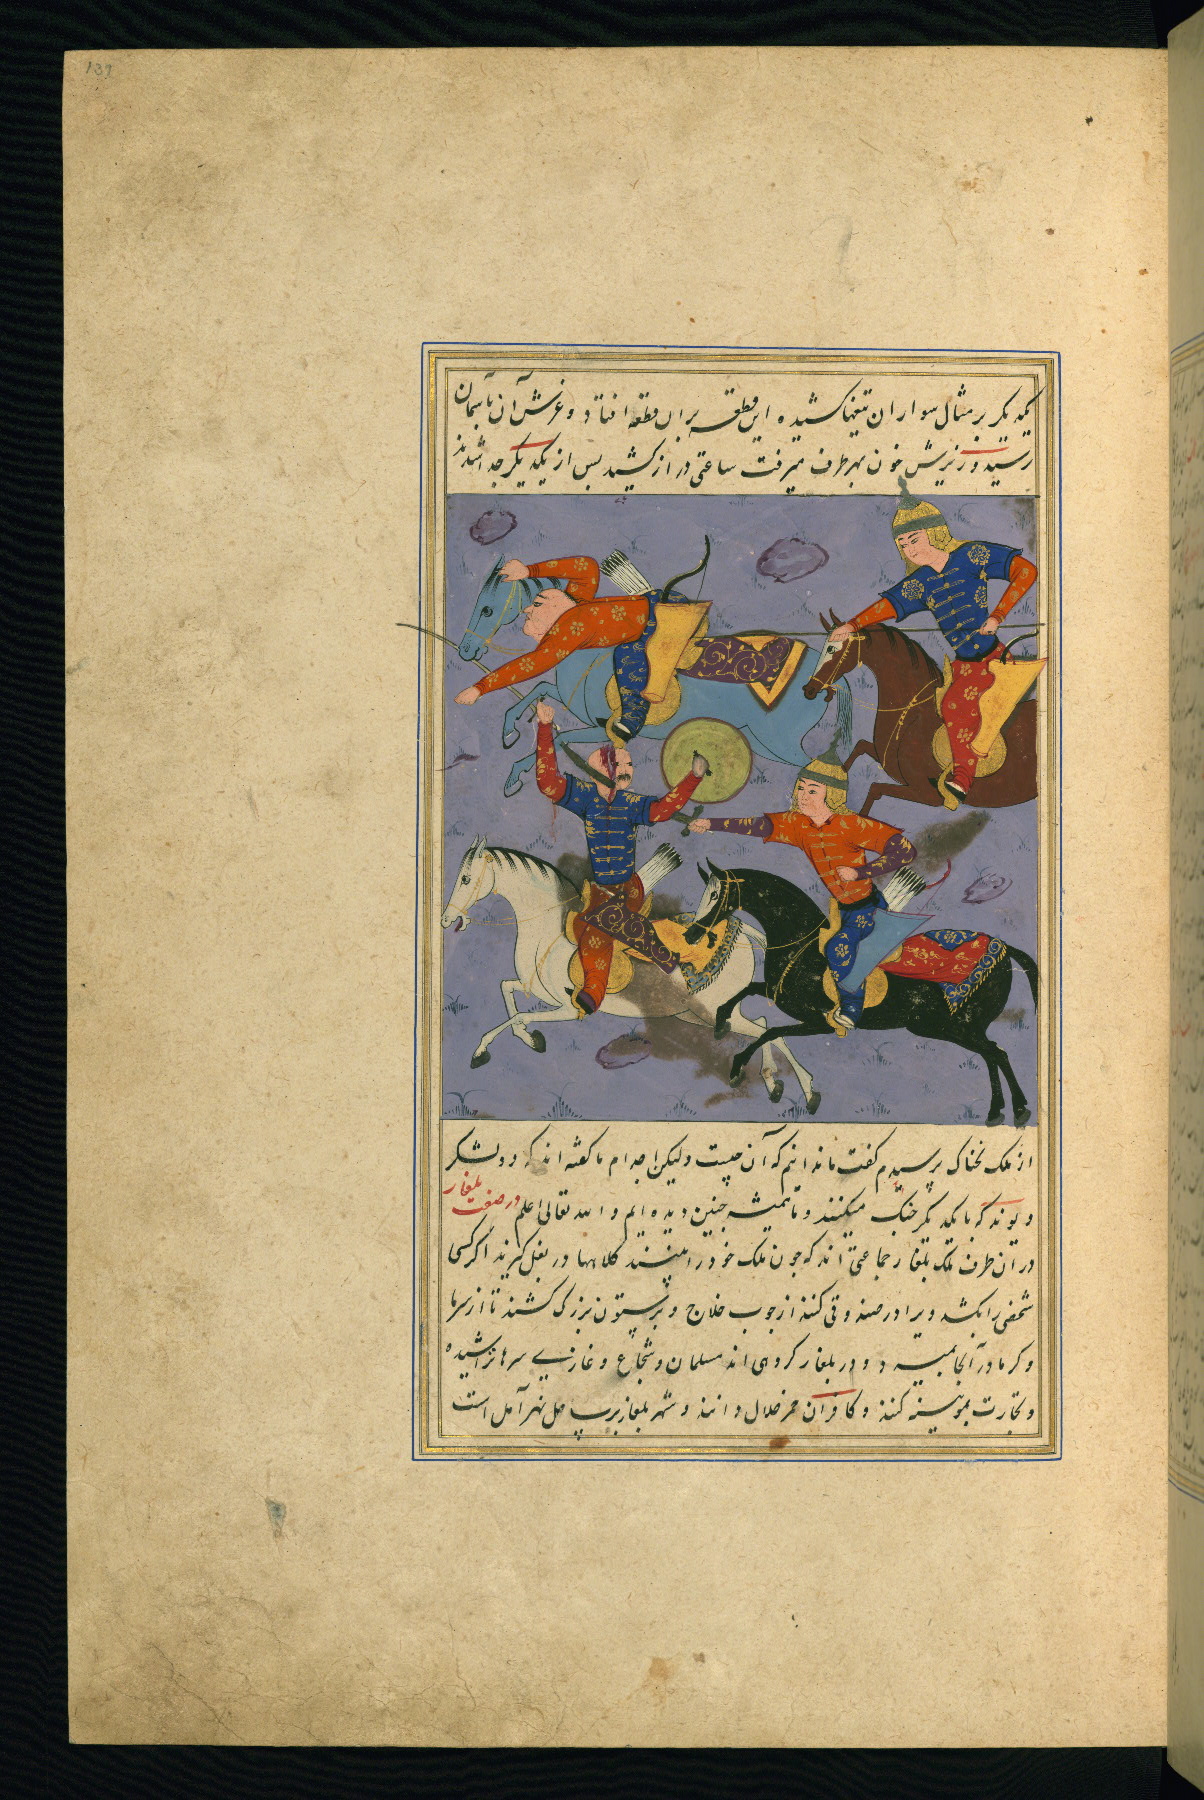 137
یکدیگر بر مثال سواران تیغها کشیده این قطعه بران قطعه افتاد و غرش آن بآسمان
رسید و ریزش خون بهر طرف میرفت ساعتی دراز کشید پس از یکدیگر جدا شدند
از ملک پرسیدم گفت ما ندانیم که آن چیست ولیکن اجدام ما گفته اند که دو لشکر
و یوند که با یکدیگر جنگ میکنند و ما همیشه چنین دیده ایم و الله تعالی اعلم در صفت بلغار
در ان طرف ملک بلغار جماعتی اند که چون ملک خود را ببینند کلاهها در بغل گیرند اگر کسی
شخصی را بکشد ویرا در صندوقی کنند از چوب خلاج و بر ستون بزرگ کشند تا از سرما
و گرما در آنجا و در بلغار گروهی اند مسلمان و شجاع و غازی سرها تراشیده
و تجارت کنند و کافران خمر حلال دانند و شهر بلغار بر ساحل نهر آمل است